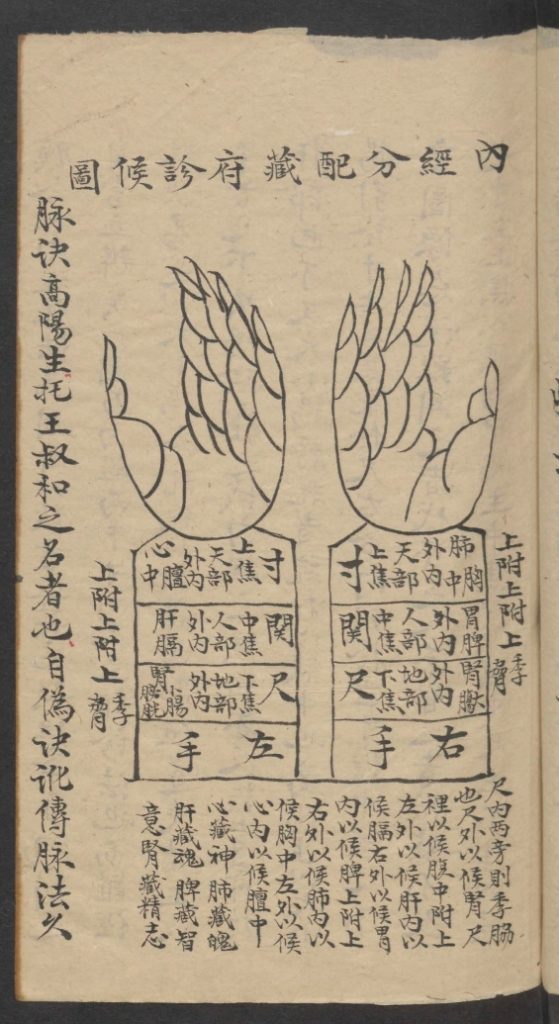 內經分配藏府診候圖
上附上附上季脅
肺胸中 外內 天部 上焦 寸
胃脾 外內 人部 中焦 関
腎 外內 地部 下焦 尺
右手
寸 上焦 天部 外內 心膻中
関 中焦 人部 外內 肝膈
尺 下焦 地部 外內 腎小腸膀胱
左手
上附上附上季脅
尺內兩旁則季
也尺外以候腎尺
裡以候腹中附上
左外以候肝內以
候膈右外以候胃
內以候脾上附上
右外以候肺內以
候胸中左外以候
心內以候膻中
心藏神肺藏魄
肝藏魂脾藏智
意腎藏精志
脉诀高陽生托王叔和之名者也自偽诀訛傳脉法久